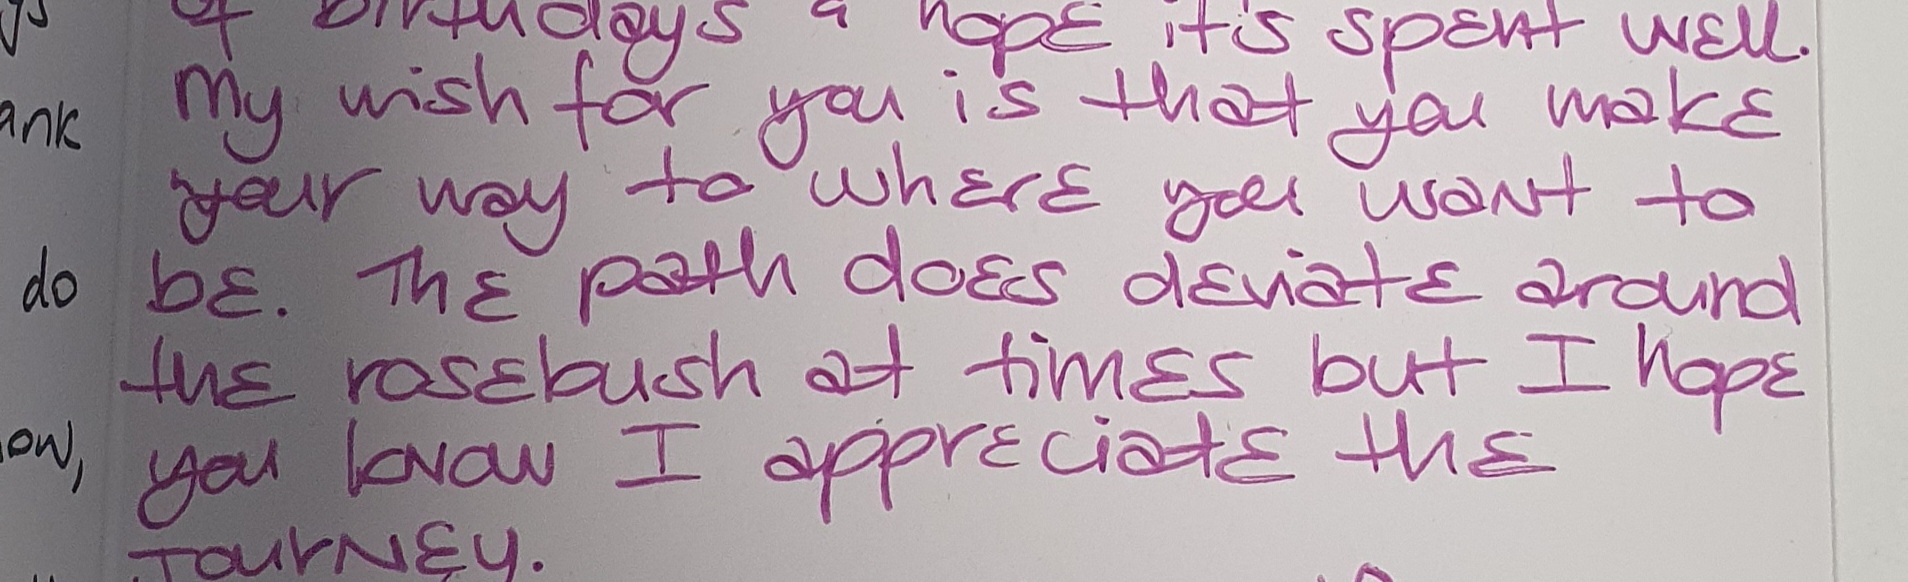 of birthdays & hope it's spent well.
ank My wish for you is that you make
your way to where you want to
do be. The path does deviate around
the rosebush at times but I hope
ow, you know I appreciate the
Journey.